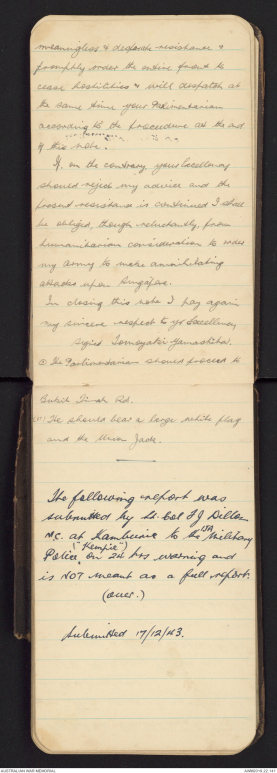 meaningless & desperate resistance &
promptly order the entire front to
cease hostilities & will despatch at
the same time your Parlimentarian
according to the procedure at the end
of this note.
If, on the contrary, your Excellency
should reject my advice and the
present resistance is continued I shall
be obliged, though reluctantly, from
humanitarian consideration to order
my army to make annihilating
attacks upon Singapore.
In closing this note I pay again
my sincere respect to yr Excellency
signed Tomoyaki Yamashita.
The Parlimentarian should proceed to
Bukit Timah Rd.
He should bear a large white flag
and the Union Jack.
The following report was
submitted by Lt. Col F J Dillon
M.C. at Kamburie to the IJA Military
Police ("Kempie") on 24 hrs warning and
is NOT meant as a full report.
(over.)
Submitted 17/12/43.
AUSTRALIAN WAR MEMORIAL